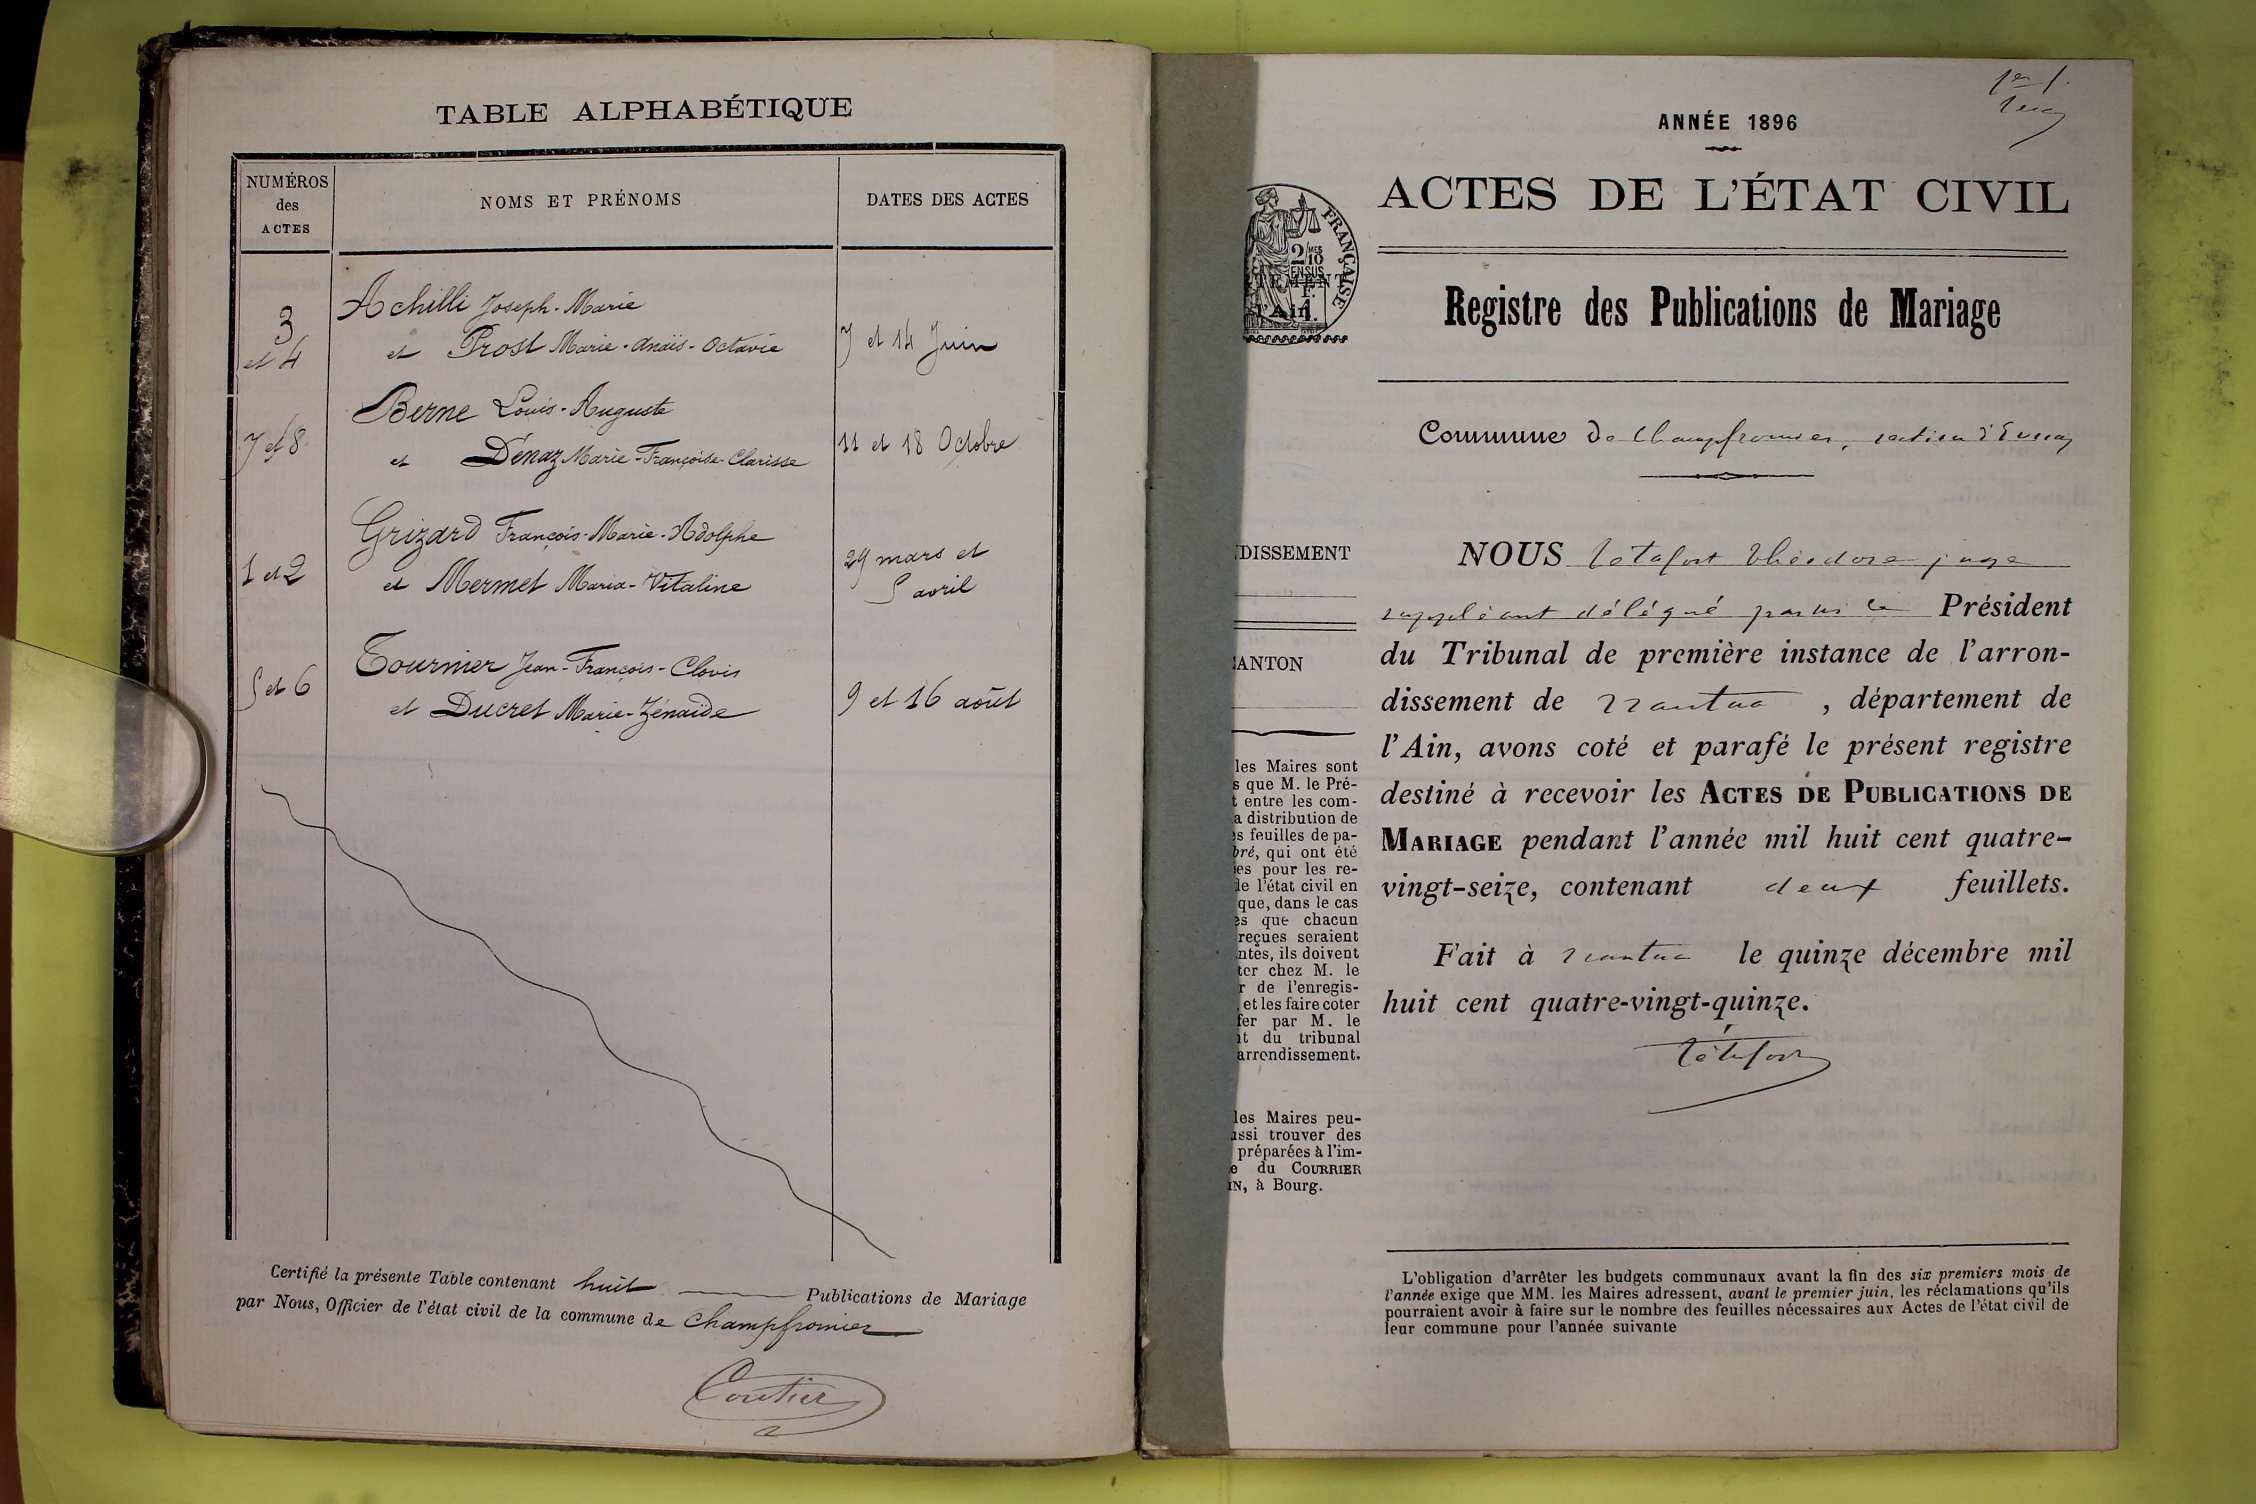 TABLE ALPHABÉTIQUE
NUMÉROS
des
ACTES
NOMS ET PRÉNOMS
DATES DES ACTES
3
et 4
Achilli Joseph-Marie
et Prost Marie-Anaïs-Octavie
7 et 14 Juin
7 et 8
Berne Louis-Auguste
et Dénaz Marie-Françoise-Clarisse
11 et 18 Octobre
1 et 2
Grizard François-Marie-Adolphe
et Mermet Maria-Vitaline
29 mars et
5 avril
5 et 6
Tournier Jean-François-Clovis
et Ducret Marie-Zénaïde
9 et 16 août
Certifié la présente Table contenant huit Publications de Mariage
par Nous, Officier de l'état civil de la commune de Champfromier
Coutier
1er f.
ANNÉE 1896
ACTES DE L'ÉTAT CIVIL
FRANÇAISE
2/10
MES
EN SUS
TEMENT
F.
l'Ain.
Registre des Publications de Mariage
Commune de Champfromier, section d'
NDISSEMENT
CANTON
les Maires sont
s que M. le Pré-
t entre les com-
a distribution de
es feuilles de pa-
bré, qui ont été
ies pour les re-
de l'état civil en
que, dans le cas
es que chacun
reçues seraient
ntes, ils doivent
ter chez M. le
r de l'enregis-
, et les faire coter
fer par M. le
nt du tribunal
arrondissement.
les Maires peu-
ussi trouver des
préparées à l'im-
e du COURRIER
IN, à Bourg.
NOUS Tétafort Théodore juge
suppléant délégué par M. le Président
du Tribunal de première instance de l'arron-
dissement de Nantua, département de
l'Ain, avons coté et parafé le présent registre
destiné à recevoir les ACTES DE PUBLICATIONS DE
MARIAGE pendant l'année mil huit cent quatre-
vingt-seize, contenant deux feuillets.
Fait à Nantua le quinze décembre mil
huit cent quatre-vingt-quinze.
Tétafort
L'obligation d'arrêter les budgets communaux avant la fin des six premiers mois de
l'année exige que MM. les Maires adressent, avant le premier juin, les réclamations qu'ils
pourraient avoir à faire sur le nombre des feuilles nécessaires aux Actes de l'état civil de
leur commune pour l'année suivante